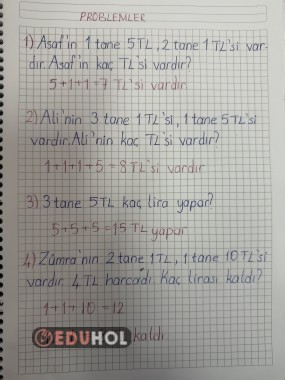 PROBLEMLER
1) Asaf'ın 1 tane 5TL, 2 tane 1TL'si var-
dır. Asaf'ın kaç TL'si vardır?
5+1+1=7 TL'si vardır
2) Ali'nin 3 tane 1TL'si, 1 tane 5TL'si
vardır. Ali'nin kaç TL'si vardır?
1+1+1+5=8TL'si vardır
3) 3 tane 5TL kaç lira yapar?
5+5+5=15TL yapar
4) Zümra'nın 2 tane 1TL, 1 tane 10TL'si
vardır. 4TL harcadı. Kaç lirası kaldı?
1+1+10=12
EDUHOL kaldı